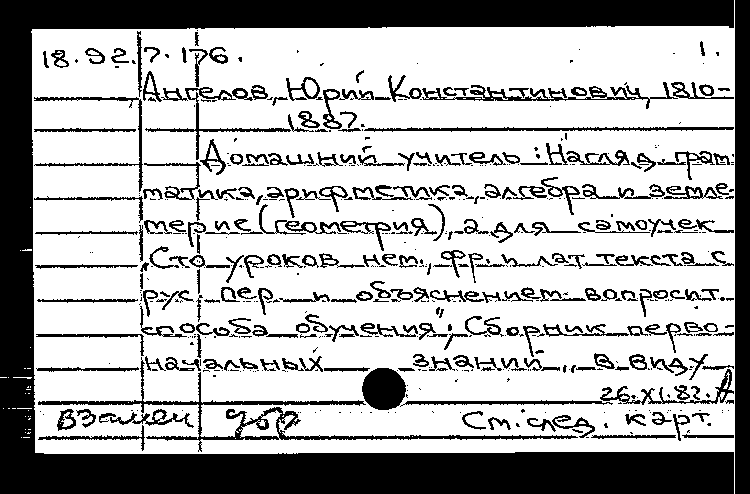 18.92.7.176. 1.
Ангелов, Юрий Константинович, 1810-
1887.
Домашний учитель: Нагляд. грам
матика, арифметика, алгебра и земле
мерие (геометрия), а для самоучек
„Сто уроков нем., фр. и лат. текста с
рус. пер. и объяснением вопросит.
способа обучения"; Сборник перво-
начальных знаний „в виду
26.XI.82.
Взамен
См. след. карт.